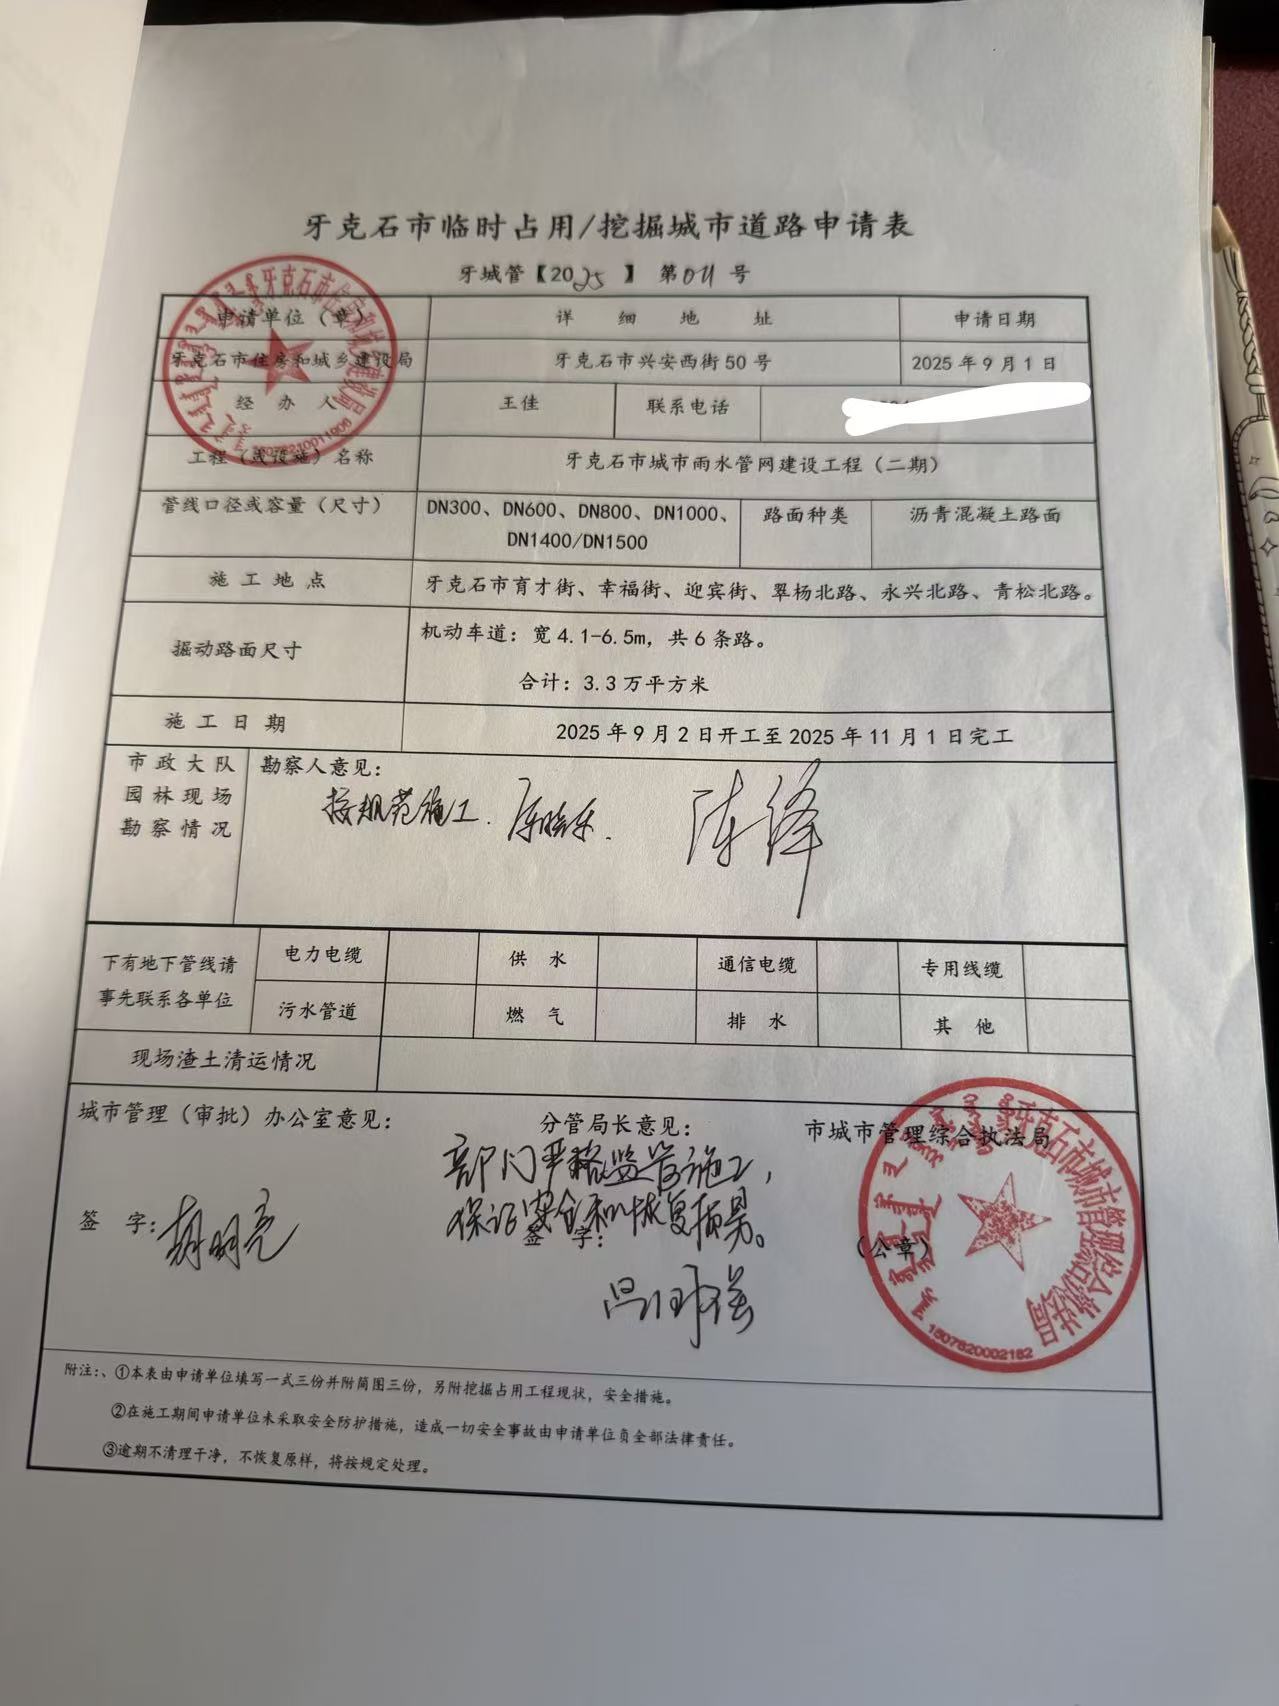 牙克石市临时占用/挖掘城市道路申请表
牙城管【2025】 第011号
申请单位（章） 详 细 地 址 申请日期
牙克石市住房和城乡建设局 牙克石市兴安西街50号 2025年9月1日
经 办 人 王佳 联系电话
工程（或设施）名称 牙克石市城市雨水管网建设工程（二期）
管线口径或容量（尺寸） DN300、DN600、DN800、DN1000、 路面种类 沥青混凝土路面
DN1400/DN1500
施 工 地 点 牙克石市育才街、幸福街、迎宾街、翠杨北路、永兴北路、青松北路。
掘动路面尺寸 机动车道：宽4.1-6.5m，共6条路。
合计：3.3万平方米
施 工 日 期 2025年9月2日开工至2025年11月1日完工
市政大队
园林现场
勘察情况
勘察人意见：
按规范施工. 陈泽
下有地下管线请
事先联系各单位
电力电缆 供 水 通信电缆 专用线缆
污水管道 燃 气 排 水 其 他
现场渣土清运情况
城市管理（审批）办公室意见： 分管局长意见： 市城市管理综合执法局
部门严格监管施工，
保证安全和恢复损害。
签 字：胡明亮 签 字： （公章）
附注：、①本表由申请单位填写一式三份并附简图三份，另附挖掘占用工程现状，安全措施。
②在施工期间申请单位未采取安全防护措施，造成一切安全事故由申请单位负全部法律责任。
③逾期不清理干净，不恢复原样，将按规定处理。
牙克石市住房和城乡建设局
牙克石市城市管理综合执法局
1507820002182